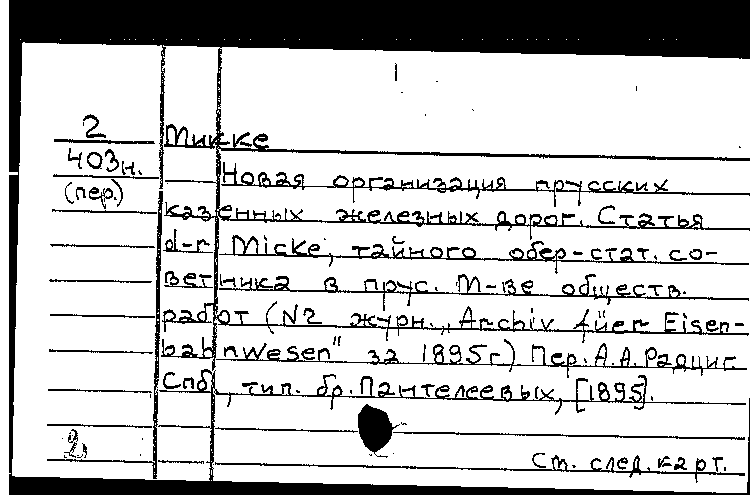 2
Микке
403н.
(пер.)
Новая организация прусских
казенных железных дорог. Статья
d-r Micke, тайного обер-стат. со-
ветника в прус. М-ве обществ.
работ (N2 журн. „Archiv füer Eisen-
bahnwesen" за 1895г.) Пер. А.А. Радциг.
Спб., тип. бр. Пантелеевых, [1895].
2,
См. след. карт.